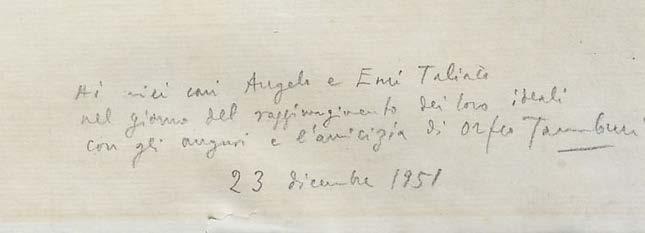 Ai miei cari Angelo e Emi
nel giorno del raggiungimento dei loro ideali
con gli auguri e l'amicizia di Orfeo Tamburi
23 dicembre 1951